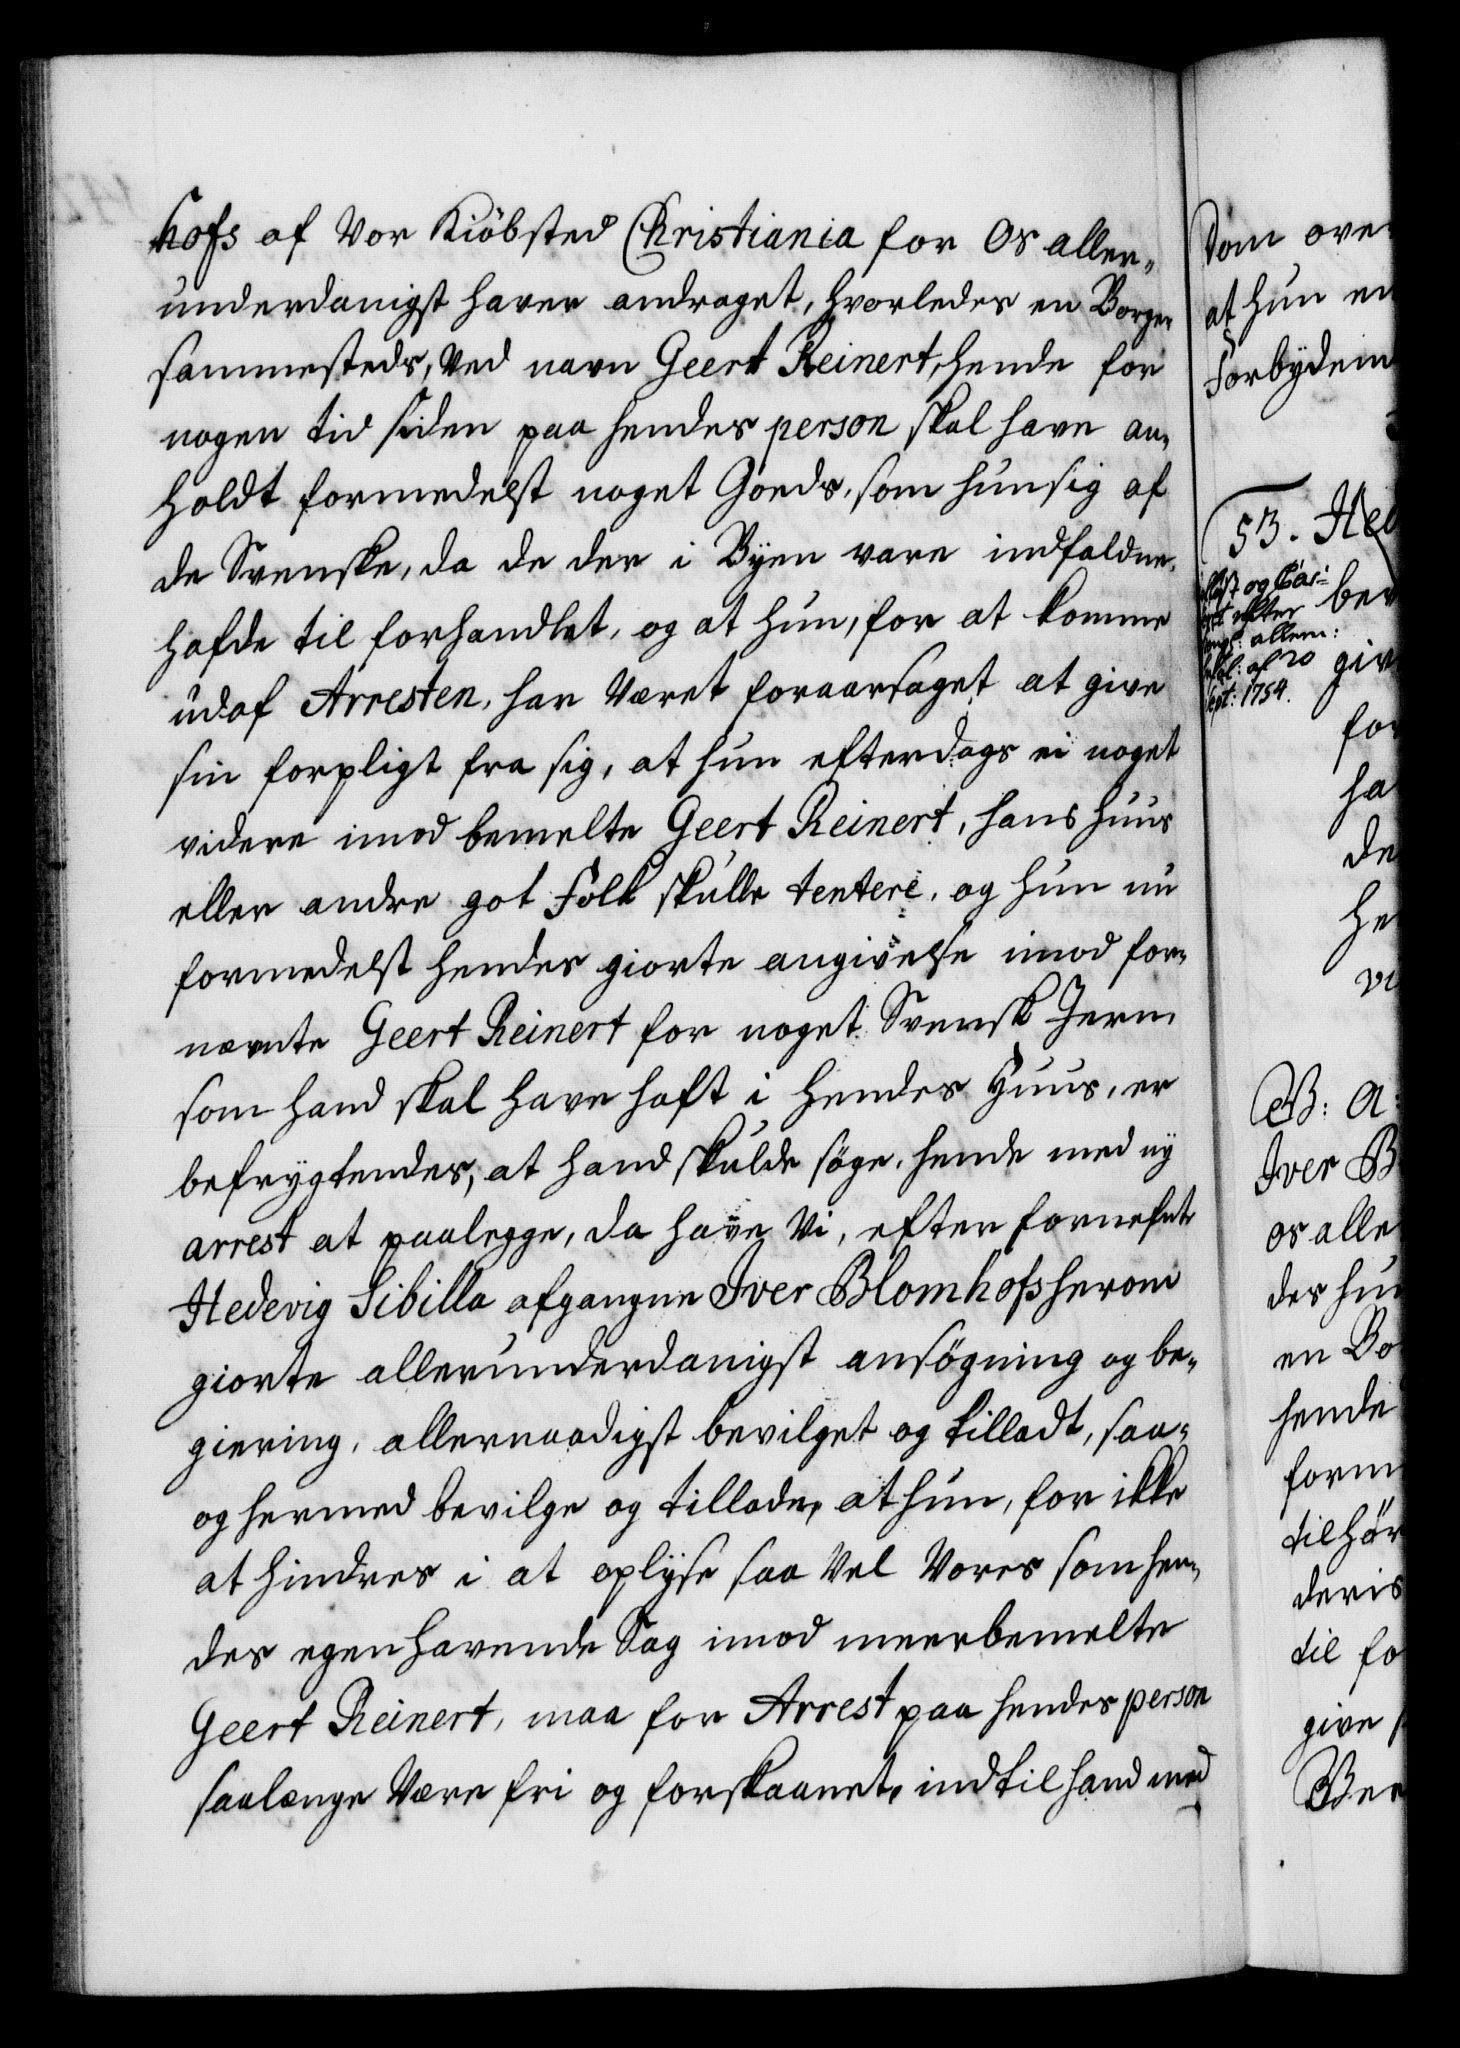 hofs af Vor Kiöbsted Christiania for Os aller„
underdanigst haver andraget, hvorledes en Borger
sammesteds, Ved navn Geert Reinert, hende for
nogen tid siden paa hendes person skal have an„
holdt formedelst noget Goeds, som hun sig af
de Svenske, da de der i Byen vare indfaldne,
hafde til forhandlet, og at hun, for at komme
udaf Arresten, har Været foraarsaget at give
sin forpligt fra sig, at hun efterdags ei noget
videre imod bemelte Geert Reinert, hans huus
eller andre got Folk skulle tentere, og hun nu
formedelst hendes giorte angivelse imod for„
nævnte Geert Reinert for noget Svensk Jern,
som hand skal have haft i hendes Huus, er
befrygtendes, at hand skulde söge, hende med ny
arrest at paalegge, da have Vi, efter fornefnte
Hedevig Sibilla afgangne Iver Blomhofs herom
giorte allerunderdanigst ansögning og be„
giering, allernaadigst bevilget og tilladt, saa„
og hermed bevilge og tillade, at hun, for ikke
at hindres i at oplyse saa Vel Vores som hen„
des egen havende Sag imod meerbemelte
Geert Reinert, maa for Arrest paa hendes person
saalænge Være fri og forskaanet, indtil hand med
Dom ove
at hun en
Forbydem
53. Hed
og Cas:
efter
allern:
af 20
Sept: 1754.
bev
giv
for
ha
de
he
vi
G: A:
Iver B
os alle
des hun
en Bo
hende
form
tilhör
deris
til fo
give s
Ber